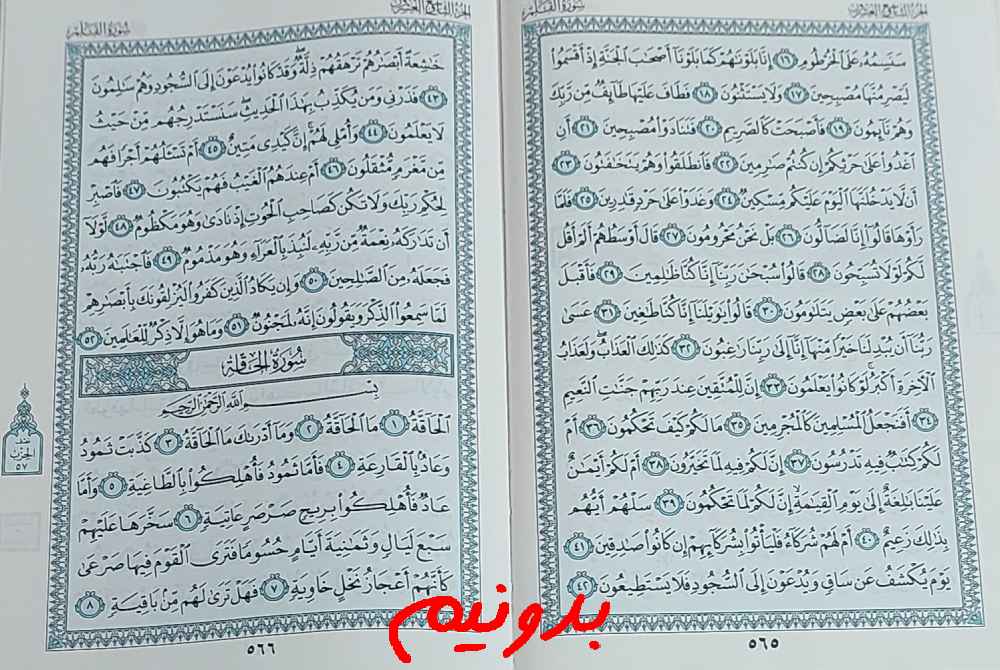 سُورَةُ القَلَمِ
الجُزْءُ التَّاسِعُ وَالعِشْرُونَ
سَنَسِمُهُۥ عَلَى ٱلۡخُرۡطُومِ ١٦ إِنَّا بَلَوۡنَٰهُمۡ كَمَا بَلَوۡنَآ أَصۡحَٰبَ ٱلۡجَنَّةِ إِذۡ أَقۡسَمُواْ
لَيَصۡرِمُنَّهَا مُصۡبِحِينَ ١٧ وَلَا يَسۡتَثۡنُونَ ١٨ فَطَافَ عَلَيۡهَا طَآئِفٞ مِّن رَّبِّكَ
وَهُمۡ نَآئِمُونَ ١٩ فَأَصۡبَحَتۡ كَٱلصَّرِيمِ ٢٠ فَتَنَادَوۡاْ مُصۡبِحِينَ ٢١ أَنِ
ٱغۡدُواْ عَلَىٰ حَرۡثِكُمۡ إِن كُنتُمۡ صَٰرِمِينَ ٢٢ فَٱنطَلَقُواْ وَهُمۡ يَتَخَٰفَتُونَ ٢٣
أَن لَّا يَدۡخُلَنَّهَا ٱلۡيَوۡمَ عَلَيۡكُم مِّسۡكِينٞ ٢٤ وَغَدَوۡاْ عَلَىٰ حَرۡدٖ قَٰدِرِينَ ٢٥ فَلَمَّا
رَأَوۡهَا قَالُوٓاْ إِنَّا لَضَآلُّونَ ٢٦ بَلۡ نَحۡنُ مَحۡرُومُونَ ٢٧ قَالَ أَوۡسَطُهُمۡ أَلَمۡ أَقُل
لَّكُمۡ لَوۡلَا تُسَبِّحُونَ ٢٨ قَالُواْ سُبۡحَٰنَ رَبِّنَآ إِنَّا كُنَّا ظَٰلِمِينَ ٢٩ فَأَقۡبَلَ
بَعۡضُهُمۡ عَلَىٰ بَعۡضٖ يَتَلَٰوَمُونَ ٣٠ قَالُواْ يَٰوَيۡلَنَآ إِنَّا كُنَّا طَٰغِينَ ٣١ عَسَىٰ
رَبُّنَآ أَن يُبۡدِلَنَا خَيۡرٗا مِّنۡهَآ إِنَّآ إِلَىٰ رَبِّنَا رَٰغِبُونَ ٣٢ كَذَٰلِكَ ٱلۡعَذَابُۖ وَلَعَذَابُ
ٱلۡأٓخِرَةِ أَكۡبَرُۚ لَوۡ كَانُواْ يَعۡلَمُونَ ٣٣ إِنَّ لِلۡمُتَّقِينَ عِندَ رَبِّهِمۡ جَنَّٰتِ ٱلنَّعِيمِ
٣٤ أَفَنَجۡعَلُ ٱلۡمُسۡلِمِينَ كَٱلۡمُجۡرِمِينَ ٣٥ مَا لَكُمۡ كَيۡفَ تَحۡكُمُونَ ٣٦ أَمۡ
لَكُمۡ كِتَٰبٞ فِيهِ تَدۡرُسُونَ ٣٧ إِنَّ لَكُمۡ فِيهِ لَمَا تَخَيَّرُونَ ٣٨ أَمۡ لَكُمۡ أَيۡمَٰنٌ
عَلَيۡنَا بَٰلِغَةٌ إِلَىٰ يَوۡمِ ٱلۡقِيَٰمَةِ إِنَّ لَكُمۡ لَمَا تَحۡكُمُونَ ٣٩ سَلۡهُمۡ أَيُّهُم
بِذَٰلِكَ زَعِيمٌ ٤٠ أَمۡ لَهُمۡ شُرَكَآءُ فَلۡيَأۡتُواْ بِشُرَكَآئِهِمۡ إِن كَانُواْ صَٰدِقِينَ ٤١
يَوۡمَ يُكۡشَفُ عَن سَاقٖ وَيُدۡعَوۡنَ إِلَى ٱلسُّجُودِ فَلَا يَسۡتَطِيعُونَ ٤٢
٥٦٥
الجُزْءُ التَّاسِعُ وَالعِشْرُونَ
سُورَةُ القَلَمِ
خَٰشِعَةً أَبۡصَٰرُهُمۡ تَرۡهَقُهُمۡ ذِلَّةٞۖ وَقَدۡ كَانُواْ يُدۡعَوۡنَ إِلَى ٱلسُّجُودِ وَهُمۡ سَٰلِمُونَ
٤٣ فَذَرۡنِي وَمَن يُكَذِّبُ بِهَٰذَا ٱلۡحَدِيثِۖ سَنَسۡتَدۡرِجُهُم مِّنۡ حَيۡثُ
لَا يَعۡلَمُونَ ٤٤ وَأُمۡلِي لَهُمۡۚ إِنَّ كَيۡدِي مَتِينٌ ٤٥ أَمۡ تَسۡـَٔلُهُمۡ أَجۡرٗا فَهُم
مِّن مَّغۡرَمٖ مُّثۡقَلُونَ ٤٦ أَمۡ عِندَهُمُ ٱلۡغَيۡبُ فَهُمۡ يَكۡتُبُونَ ٤٧ فَٱصۡبِرۡ
لِحُكۡمِ رَبِّكَ وَلَا تَكُن كَصَاحِبِ ٱلۡحُوتِ إِذۡ نَادَىٰ وَهُوَ مَكۡظُومٞ ٤٨ لَّوۡلَآ
أَن تَدَٰرَكَهُۥ نِعۡمَةٞ مِّن رَّبِّهِۦ لَنُبِذَ بِٱلۡعَرَآءِ وَهُوَ مَذۡمُومٞ ٤٩ فَٱجۡتَبَٰهُ رَبُّهُۥ
فَجَعَلَهُۥ مِنَ ٱلصَّٰلِحِينَ ٥٠ وَإِن يَكَادُ ٱلَّذِينَ كَفَرُواْ لَيُزۡلِقُونَكَ بِأَبۡصَٰرِهِمۡ
لَمَّا سَمِعُواْ ٱلذِّكۡرَ وَيَقُولُونَ إِنَّهُۥ لَمَجۡنُونٞ ٥١ وَمَا هُوَ إِلَّا ذِكۡرٞ لِّلۡعَٰلَمِينَ ٥٢
سُورَةُ الحَاقَّةِ
بِسۡمِ ٱللَّهِ ٱلرَّحۡمَٰنِ ٱلرَّحِيمِ
ٱلۡحَآقَّةُ ١ مَا ٱلۡحَآقَّةُ ٢ وَمَآ أَدۡرَىٰكَ مَا ٱلۡحَآقَّةُ ٣ كَذَّبَتۡ ثَمُودُ
وَعَادُۢ بِٱلۡقَارِعَةِ ٤ فَأَمَّا ثَمُودُ فَأُهۡلِكُواْ بِٱلطَّاغِيَةِ ٥ وَأَمَّا
عَادٞ فَأُهۡلِكُواْ بِرِيحٖ صَرۡصَرٍ عَاتِيَةٖ ٦ سَخَّرَهَا عَلَيۡهِمۡ
سَبۡعَ لَيَالٖ وَثَمَٰنِيَةَ أَيَّامٍ حُسُومٗاۖ فَتَرَى ٱلۡقَوۡمَ فِيهَا صَرۡعَىٰ
كَأَنَّهُمۡ أَعۡجَازُ نَخۡلٍ خَاوِيَةٖ ٧ فَهَلۡ تَرَىٰ لَهُم مِّنۢ بَاقِيَةٖ ٨
٥٦٦
نصف
الحزب
٥٧
بدونيم